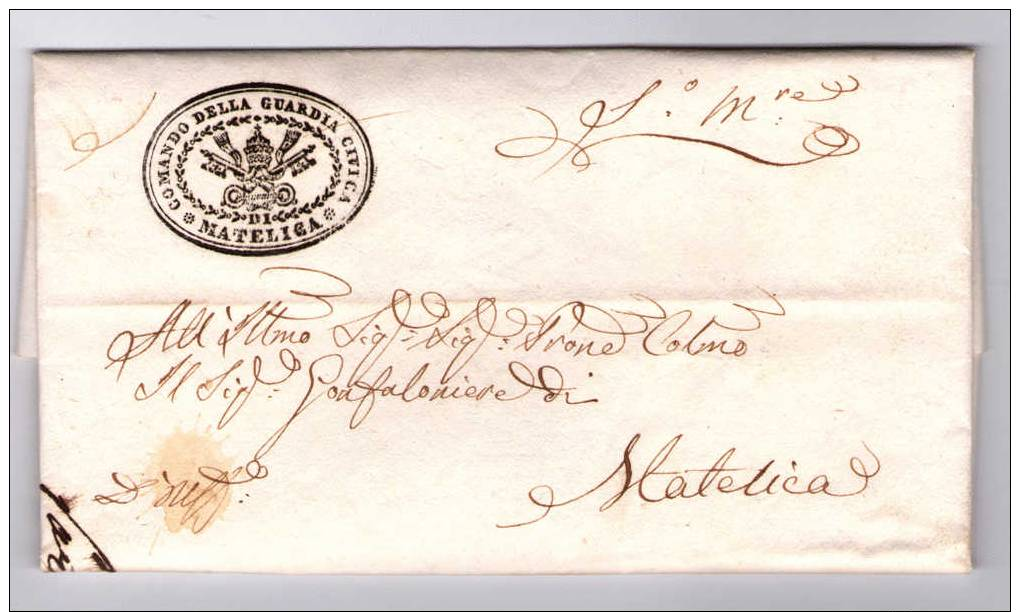 COMANDO DELLA GUARDIA CIVICA
DI
MATELICA
S.º M.re
All' Illmo Sig.r Sig.r Prone Colmo
Il Sig.r Gonfaloniere di
Matelica